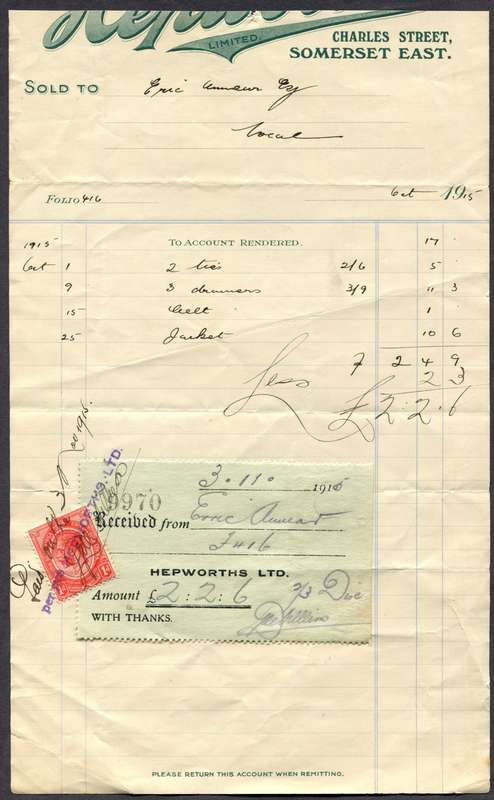 Hepworths
LIMITED.
CHARLES STREET,
SOMERSET EAST.
SOLD TO Eric
Local
FOLIO 416 Oct 1915
1915 TO ACCOUNT RENDERED. 17
Oct 1 2 ties 2/6 5
9 3 drawers 3/9 11 3
15 1
25 Jacket 10 6
£ 2 4 9
Less 2 3
£2. 2. 6
Paid 3 Nov 1915.
per pro HEPWORTHS. LTD.
3. 11. 1915
9970
Received from Eric
F416
HEPWORTHS LTD.
Amount £2 : 2 : 6 2/3 Disc
WITH THANKS.
PLEASE RETURN THIS ACCOUNT WHEN REMITTING.